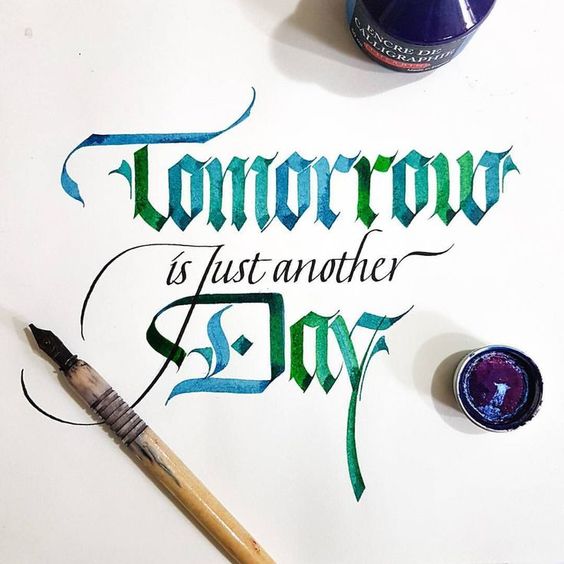 ENCRE DE
CALLIGRAPHIE
Tomorrow
is Just another
Day